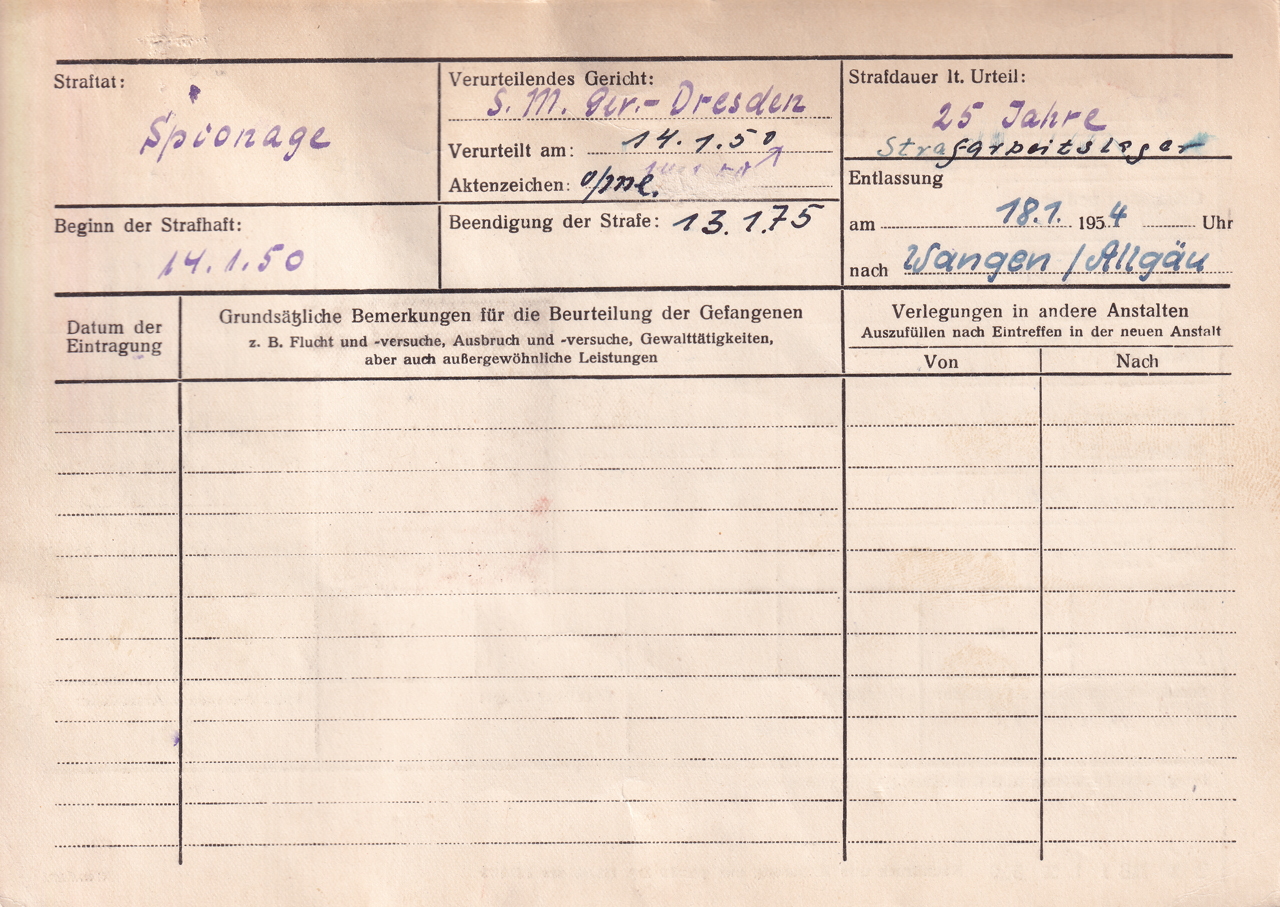 Straftat:
Spionage
Verurteilendes Gericht:
S. M. Ger.- Dresden
Verurteilt am: 14.1.50
Aktenzeichen: o/ne.
Strafdauer lt. Urteil:
25 Jahre
Strafarbeitslager
Entlassung
am 18.1. 1954 Uhr
nach Wangen / Allgäu
Beginn der Strafhaft:
14.1.50
Beendigung der Strafe: 13.1.75
Datum der
Eintragung
Grundsätzliche Bemerkungen für die Beurteilung der Gefangenen
z. B. Flucht und -versuche, Ausbruch und -versuche, Gewalttätigkeiten,
aber auch außergewöhnliche Leistungen
Verlegungen in andere Anstalten
Auszufüllen nach Eintreffen in der neuen Anstalt
Von
Nach